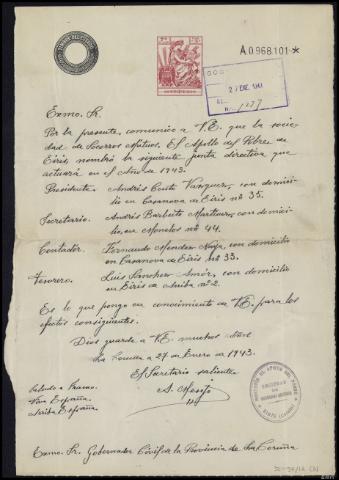 A0.968.101 *
GOB
27 ENE. 1943
Exmo. Sr.
Por la presente, comunico a V.E. que la socie-
dad de Socorros Mutuos, El Apollo del Pobre de
Eiris, nombró la siguiente junta directiva que
actuará en el Año de 1943.
Presidente. Andrés Couto Vazquez, con domici-
lio en Casanova de Eiris nº 35.
Secretario. Andrés Barbeito Martinez, con domici-
lio, en Monelos nº 44.
Contador. Fernando Mendez, con domicilio
en Casanova de Eiris nº 33.
Tesorero. Luis Sanchez Amór, con domicilio
en Eiris de Arriba nº 2.
Es lo que pongo en conocimiento de V.E. para los
efectos consiguientes.
Dios guarde a V.E. muchos años
La Coruña a 27 de Enero de 1943.
El Secretario saliente
Saludo a Franco.
Viva España,
Arriba España,
Exmo. Sr. Gobernador Civil de la Provincia de La Coruña